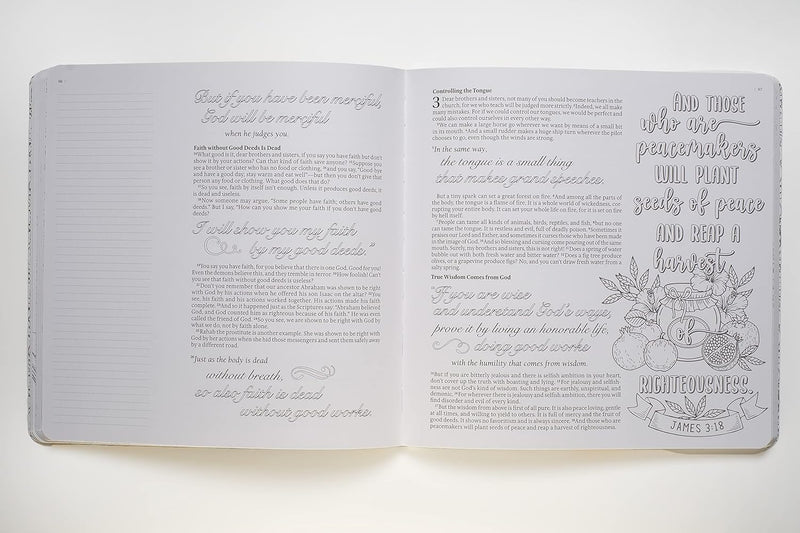 But if you have been merciful,
God will be merciful
when he judges you.
Faith without Good Deeds Is Dead
¹⁴What good is it, dear brothers and sisters, if you say you have faith but don't
show it by your actions? Can that kind of faith save anyone? ¹⁵Suppose you
see a brother or sister who has no food or clothing, ¹⁶and you say, "Good-bye
and have a good day; stay warm and eat well"—but then you don't give that
person any food or clothing. What good does that do?
¹⁷So you see, faith by itself isn't enough. Unless it produces good deeds, it
is dead and useless.
¹⁸Now someone may argue, "Some people have faith; others have good
deeds." But I say, "How can you show me your faith if you don't have good
deeds?
I will show you my faith
by my good deeds."
¹⁹You say you have faith, for you believe that there is one God. Good for you!
Even the demons believe this, and they tremble in terror. ²⁰How foolish! Can't
you see that faith without good deeds is useless?
²¹Don't you remember that our ancestor Abraham was shown to be right
with God by his actions when he offered his son Isaac on the altar? ²²You
see, his faith and his actions worked together. His actions made his faith
complete. ²³And so it happened just as the Scriptures say: "Abraham believed
God, and God counted him as righteous because of his faith." He was even
called the friend of God. ²⁴So you see, we are shown to be right with God by
what we do, not by faith alone.
²⁵Rahab the prostitute is another example. She was shown to be right with
God by her actions when she hid those messengers and sent them safely away
by a different road.
²⁶Just as the body is dead
without breath,
so also faith is dead
without good works.
Controlling the Tongue
3 Dear brothers and sisters, not many of you should become teachers in the
church, for we who teach will be judged more strictly. ²Indeed, we all make
many mistakes. For if we could control our tongues, we would be perfect and
could also control ourselves in every other way.
³We can make a large horse go wherever we want by means of a small bit
in its mouth. ⁴And a small rudder makes a huge ship turn wherever the pilot
chooses to go, even though the winds are strong.
⁵In the same way,
the tongue is a small thing
that makes grand speeches.
But a tiny spark can set a great forest on fire. ⁶And among all the parts of
the body, the tongue is a flame of fire. It is a whole world of wickedness, cor-
rupting your entire body. It can set your whole life on fire, for it is set on fire
by hell itself.
⁷People can tame all kinds of animals, birds, reptiles, and fish, ⁸but no one
can tame the tongue. It is restless and evil, full of deadly poison. ⁹Sometimes it
praises our Lord and Father, and sometimes it curses those who have been made
in the image of God. ¹⁰And so blessing and cursing come pouring out of the same
mouth. Surely, my brothers and sisters, this is not right! ¹¹Does a spring of water
bubble out with both fresh water and bitter water? ¹²Does a fig tree produce
olives, or a grapevine produce figs? No, and you can't draw fresh water from a
salty spring.
True Wisdom Comes from God
¹³If you are wise
and understand God's ways,
prove it by living an honorable life,
doing good works
with the humility that comes from wisdom.
¹⁴But if you are bitterly jealous and there is selfish ambition in your heart,
don't cover up the truth with boasting and lying. ¹⁵For jealousy and selfish-
ness are not God's kind of wisdom. Such things are earthly, unspiritual, and
demonic. ¹⁶For wherever there is jealousy and selfish ambition, there you will
find disorder and evil of every kind.
¹⁷But the wisdom from above is first of all pure. It is also peace loving, gentle
at all times, and willing to yield to others. It is full of mercy and the fruit of
good deeds. It shows no favoritism and is always sincere. ¹⁸And those who are
peacemakers will plant seeds of peace and reap a harvest of righteousness.
AND THOSE
who are
peacemakers
WILL PLANT
seeds of peace
AND REAP A
harvest
of
RIGHTEOUSNESS.
JAMES 3:18